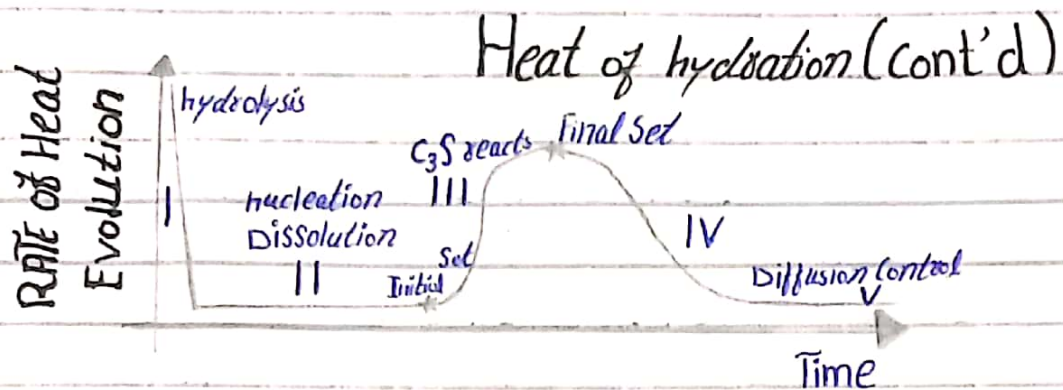 Heat of hydration (Cont'd)
RATE of Heat
Evolution
hydrolysis
I
nucleation
Dissolution
II
Initial
Set
C3S reacts
III
Final Set
IV
Diffusion Control
V
Time